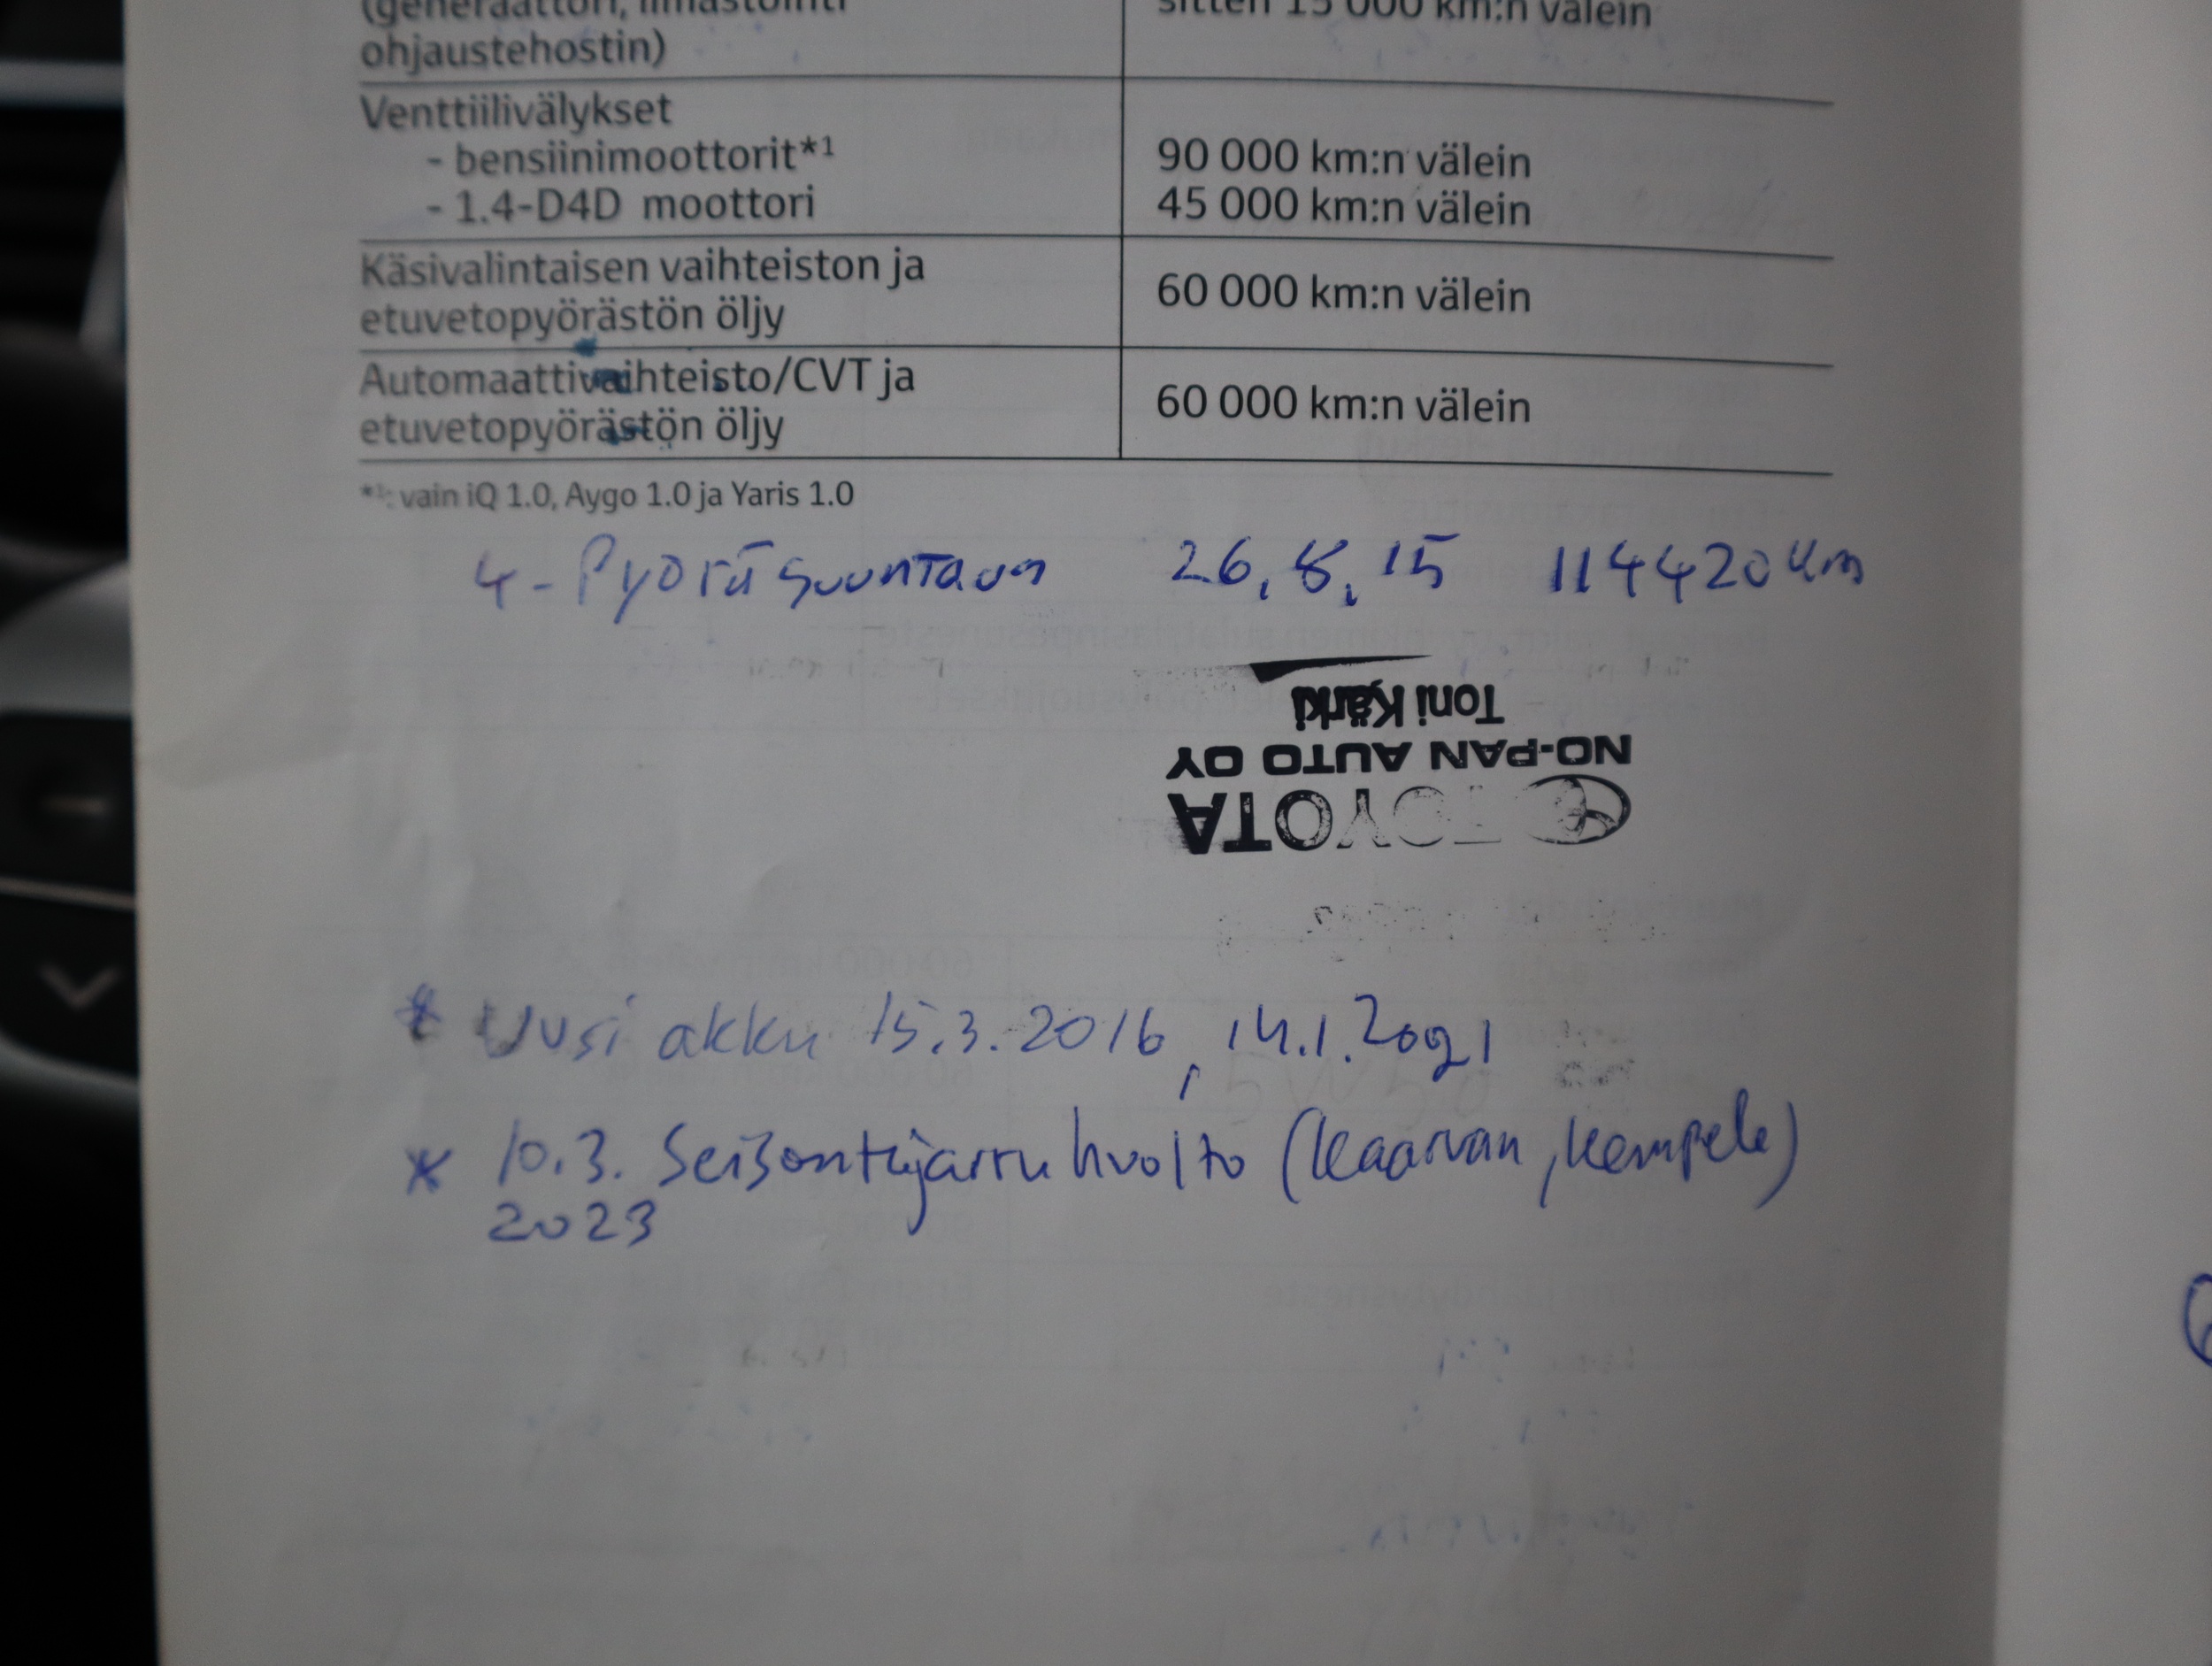 (generaattori, ilmastointi
ohjaustehostin)
sitten 15 000 km:n välein
Venttiilivälykset
- bensiinimoottorit*1
90 000 km:n välein
- 1.4-D4D moottori
45 000 km:n välein
Käsivalintaisen vaihteiston ja
etuvetopyörästön öljy
60 000 km:n välein
Automaattivaihteisto/CVT ja
etuvetopyörästön öljy
60 000 km:n välein
*1: vain iQ 1.0, Aygo 1.0 ja Yaris 1.0
4-Pyöräsuuntaus 26.8.15 114420 km
TOYOTA
NO-PAN AUTO OY
Toni Kärki
* Uusi akku 15.3.2016, 14.1.2021
* 10.3. Seisontajarruhuolto (Kaarvan, Kempele)
2023